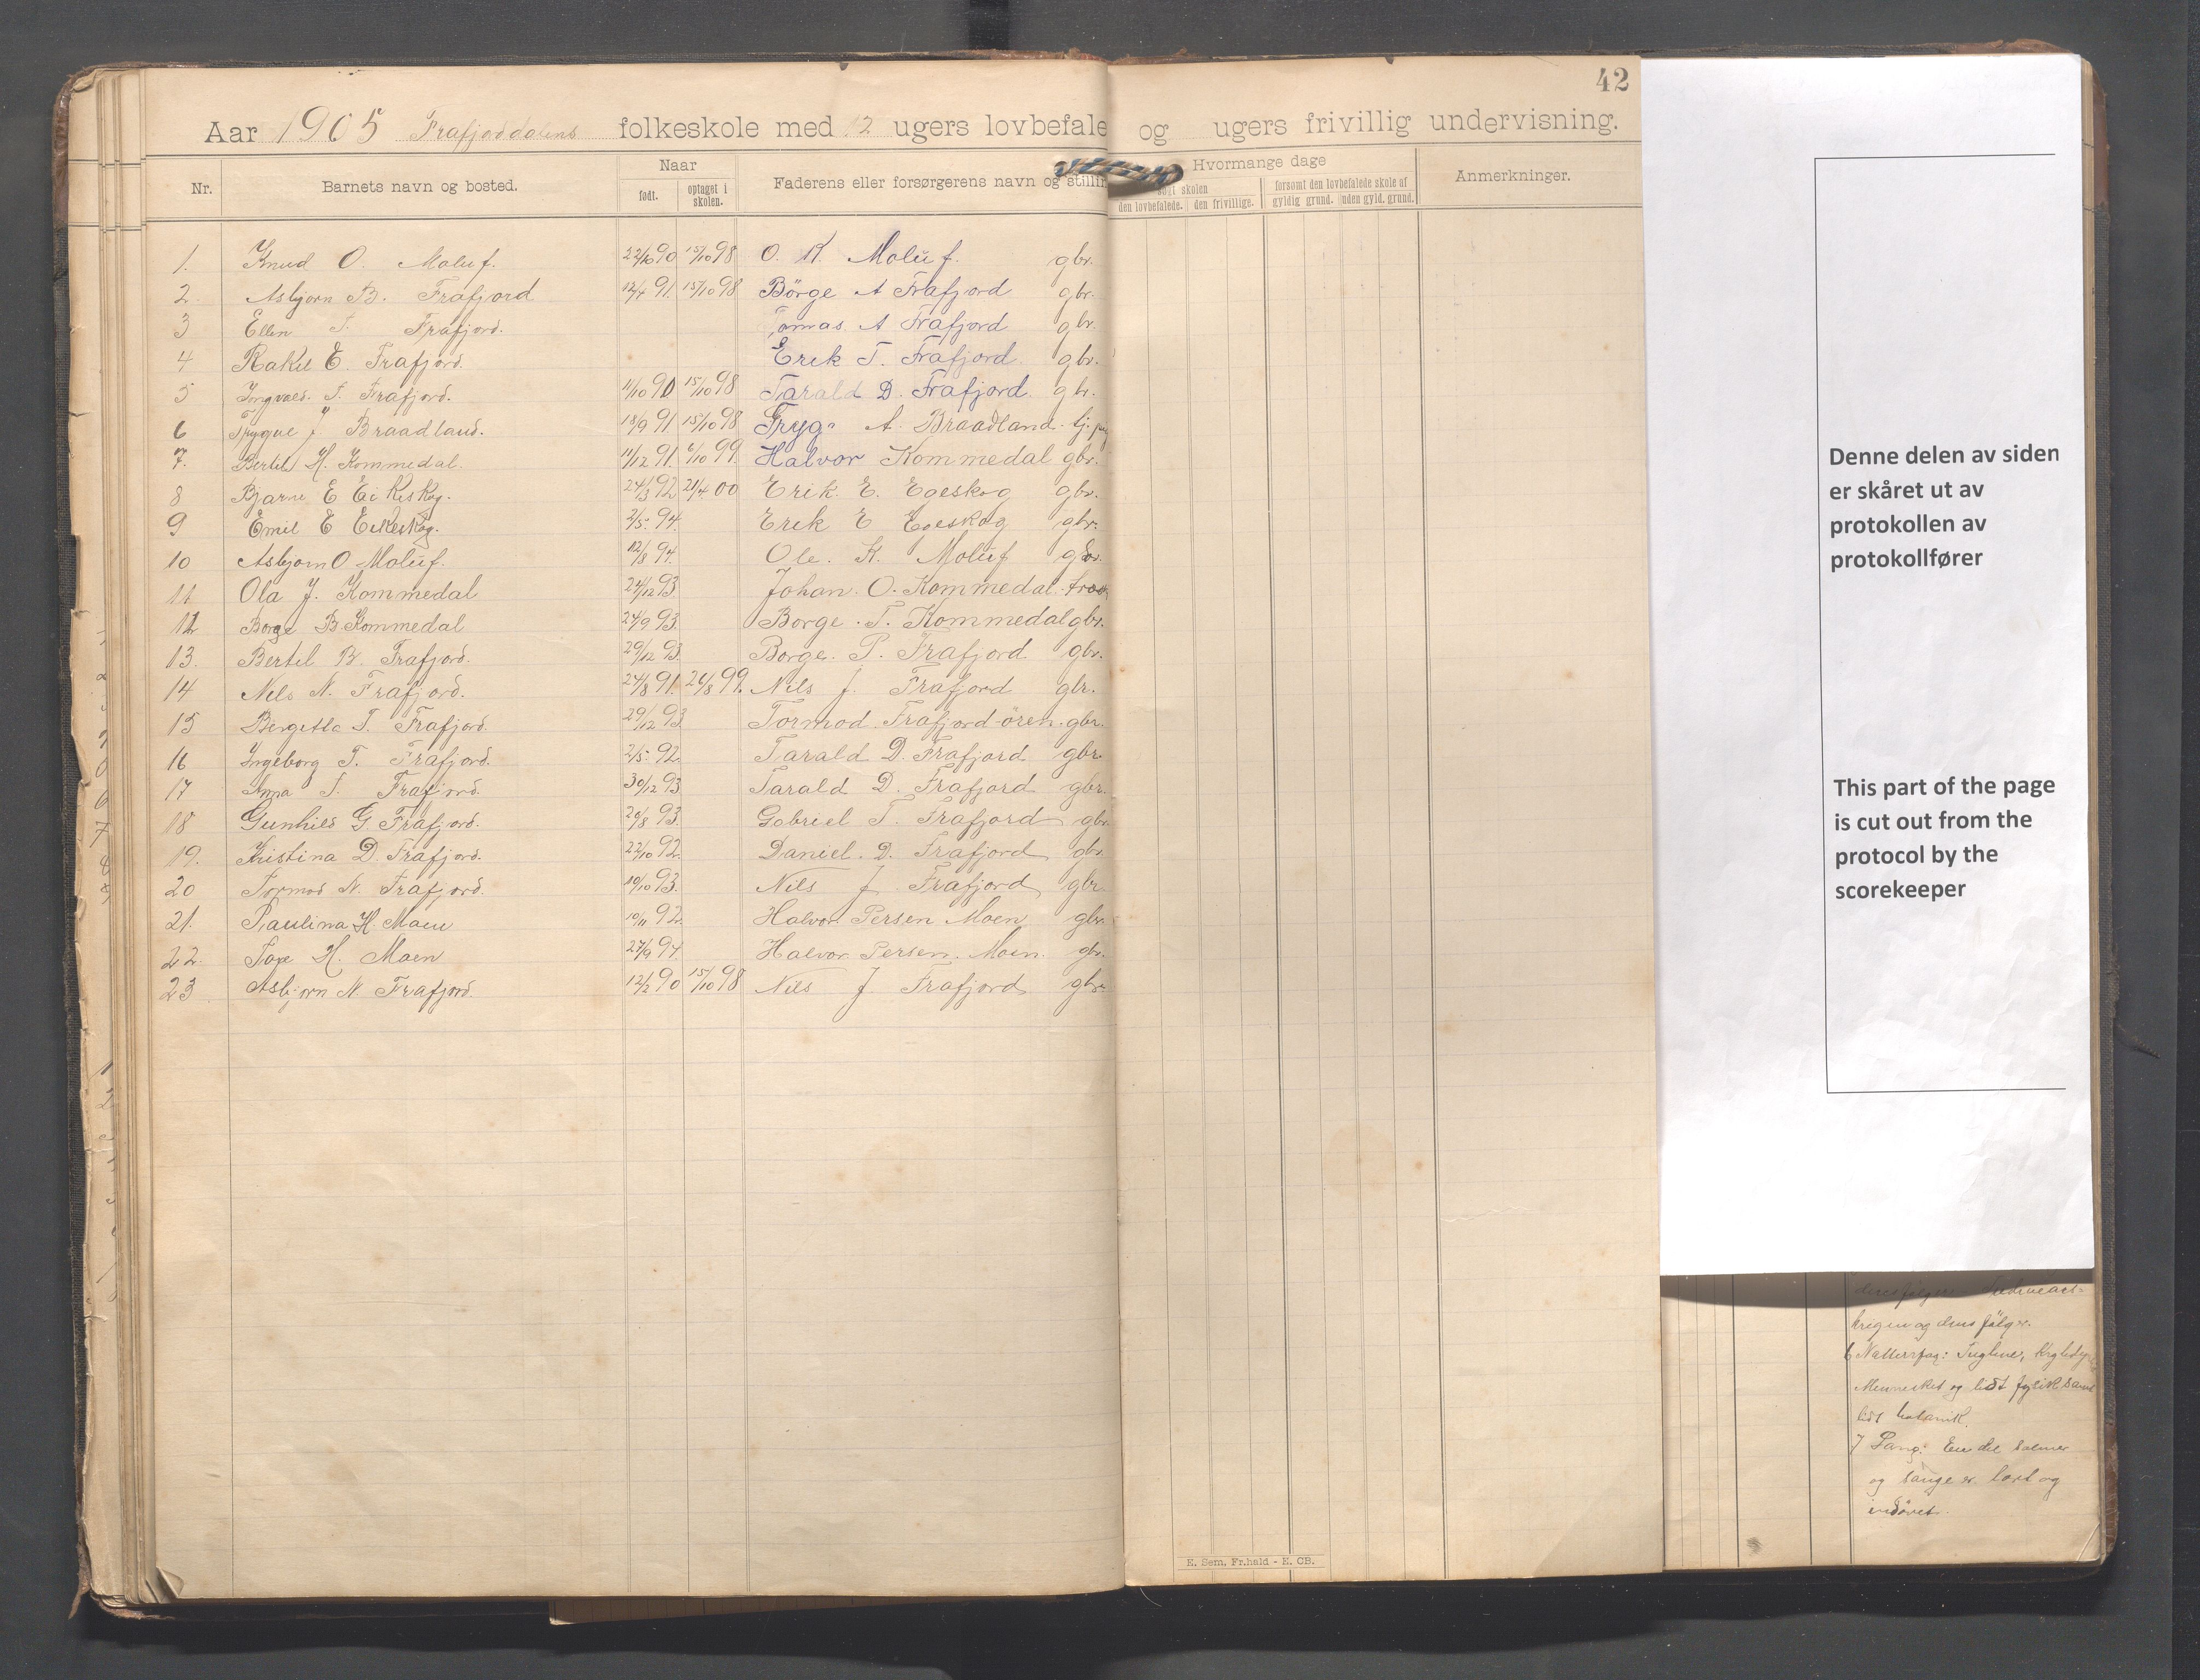 42
Aar 1905 Frafjorddalens folkeskole med 12 ugers lovbefale og ugers frivillig undervisning.
Nr. Barnets navn og bosted. Naar født. optaget i skolen. Faderens eller forsørgerens navn og stillin Hvormange dage søgt skolen den lovbefalede. den frivillige. forsømt den lovbefalede skole af gyldig grund. uden gyld. grund. Anmerkninger.
1. Knud O. Moluf. 22/10 90 15/10 98 O. K. Moluf. gbr.
2. Asbjørn B. Frafjord 12/4 91. 15/10 98 Börge A Frafjord gbr.
3 Ellen T. Frafjord. Tomas A Frafjord gbr.
4 Rakel E. Frafjord. Erik T. Frafjord gbr.
5 Ingvald. T. Frafjord. 11/10 90 15/10 98 Tarald D. Frafjord. gbr.
6 Trygve J. Braadland. 18/9 91 15/10 98 A. Braadland
7. Bertel H. Kommedal. 11/12 91. 6/10 99. Halvor Kommedal gbr.
8 Bjarne E Eikeskog. 24/3 92 21/4 00 Erik. E. Egeskog gbr.
9 Emil E Eikeskog. 2/5. 94. Erik E Egeskog gbr.
10 Asbjørn O Moluf. 12/8 94. Ole. K. Moluf gbr.
11 Ola J. Kommedal 24/12 93. Johan. O. Kommedal.
12 Borge B Kommedal 24/9 93. Borge. T. Kommedal gbr.
13. Bertel B. Frafjord. 29/12 93. Borge. P. Frafjord gbr.
14 Nils N. Frafjord. 24/8 91. 26/8 99. Nils J. Frafjord gbr.
15 Bergitta T. Frafjord. 29/12 93 Tormod Frafjord-ören. gbr.
16 Ingeborg T. Frafjord. 2/5. 92. Tarald D. Frafjord gbr.
17 Anna T. Frafjord. 30/12 93 Tarald D. Frafjord gbr.
18 Gunhild G. Frafjord. 20/8 93. Gabriel T. Frafjord gbr.
19. Kristina D. Frafjord. 22/10 92. Daniel. D. Frafjord gbr.
20 Tormod N. Frafjord. 10/10 93. Nils J Frafjord gbr.
21. Paulina H Moen 10/11 92. Halvor Persen Moen gbr.
22. H. Moen 27/9 94. Halvor Persen. Moen. gbr.
23 Asbjørn N. Frafjord. 12/2 90 15/10 98 Nils J Frafjord gbr.
E. Sem, Fr.hald - E. CB.
Denne delen av siden
er skåret ut av
protokollen av
protokollfører
This part of the page
is cut out from the
protocol by the
scorekeeper
krigen og dens følger.
6 Naturfag: Fuglene,
Mennesket og lidt fysik samt
lidt botanik.
7 Sang: En del salmer
og sange er lært og
indøvet.